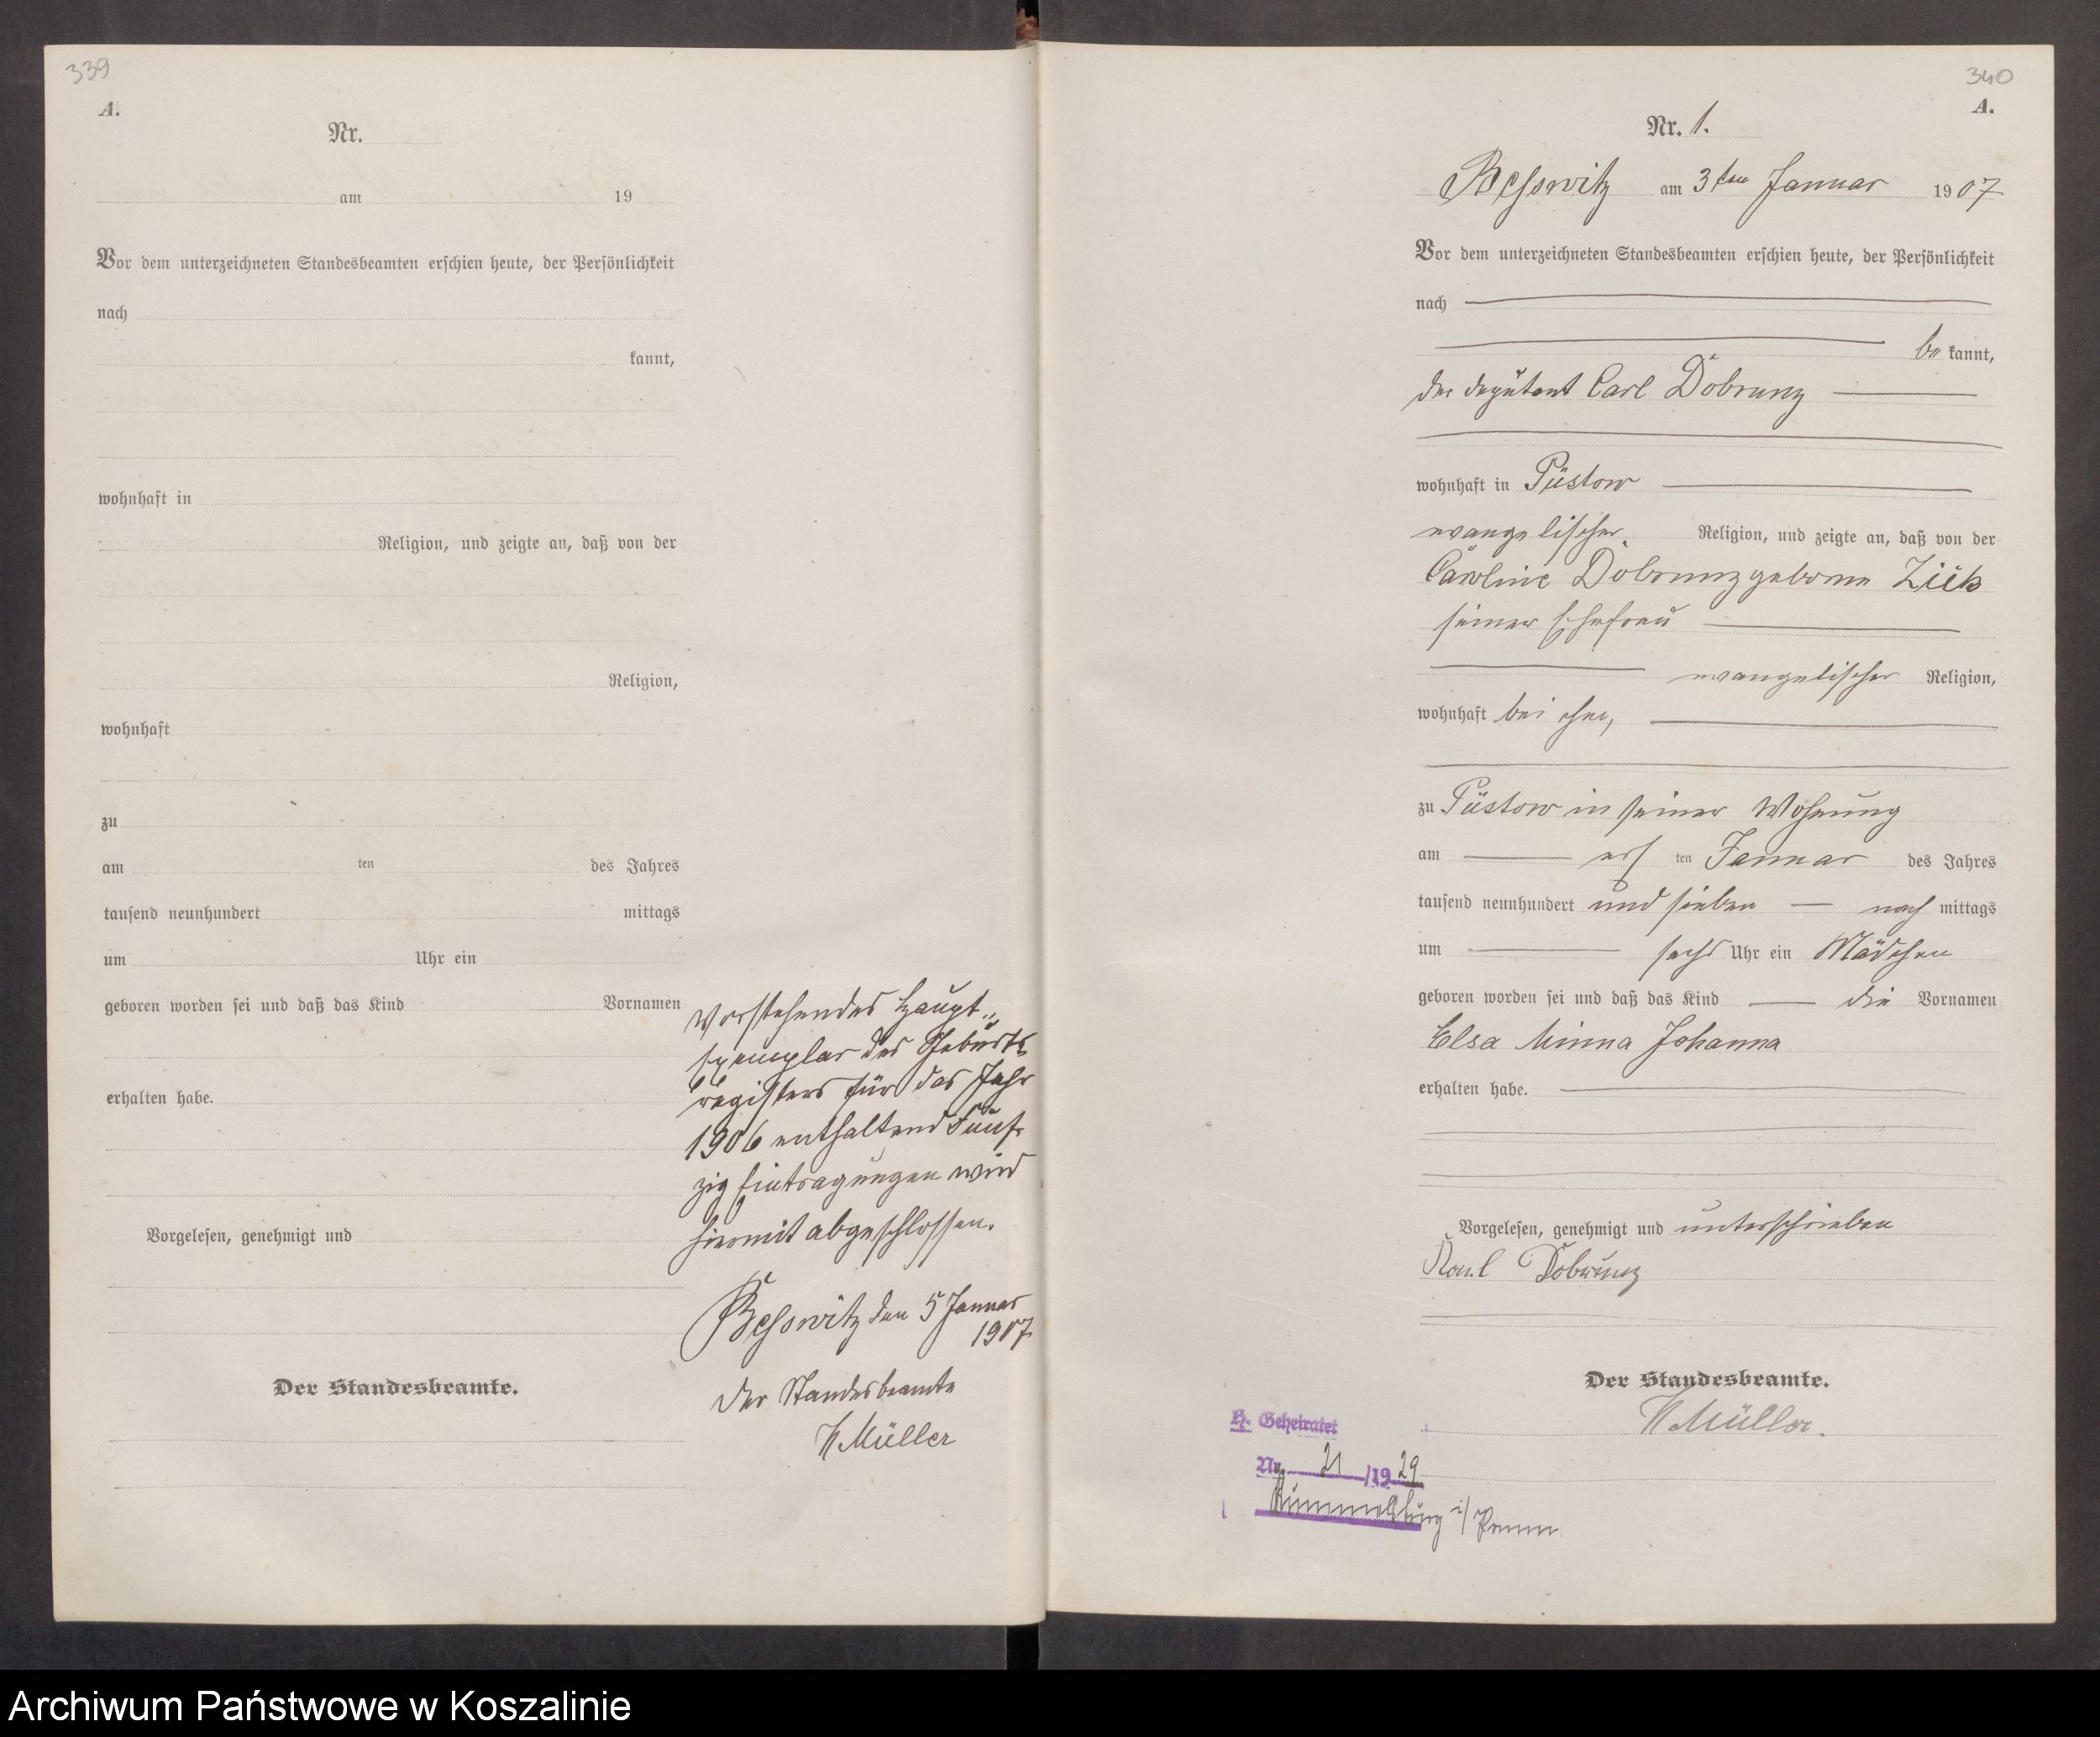 339
A.
Nr.
am 19
Vor dem unterzeichneten Standesbeamten erschien heute, der Persönlichkeit
nach
kannt,
wohnhaft in
Religion, und zeigte an, daß von der
Religion,
wohnhaft
zu
am ten des Jahres
tausend neunhundert mittags
um Uhr ein
geboren worden sei und daß das Kind Vornamen
erhalten habe.
Vorgelesen, genehmigt und
Der Standesbeamte.
Vorstehendes Haupt-
Exemplar des Geburts-
registers für das Jahr
1906 enthaltend Fünf-
zig Eintragungen wird
hiermit abgeschlossen.
Beßwitz den 5 Januar
1907
Der Standesbeamte
Müller
340
A.
Nr. 1.
Beßwitz am 3ten Januar 1907
Vor dem unterzeichneten Standesbeamten erschien heute, der Persönlichkeit
nach
bekannt,
der Deputant Carl Dobrunz
wohnhaft in Püstow
evangelischer Religion, und zeigte an, daß von der
Caroline Dobrunz geborne Ziek
seiner Ehefrau
evangelischer Religion,
wohnhaft bei ihm,
zu Püstow in seiner Wohnung
am ersten Januar des Jahres
tausend neunhundert und sieben nachmittags
um sechs Uhr ein Mädchen
geboren worden sei und daß das Kind die Vornamen
Elsa Minna Johanna
erhalten habe.
Vorgelesen, genehmigt und unterschrieben
Karl Dobrunz
Der Standesbeamte.
Müller.
Geheiratet
Nr. 21/1929
Rummelsburg i/Pomm.
Archiwum Państwowe w Koszalinie